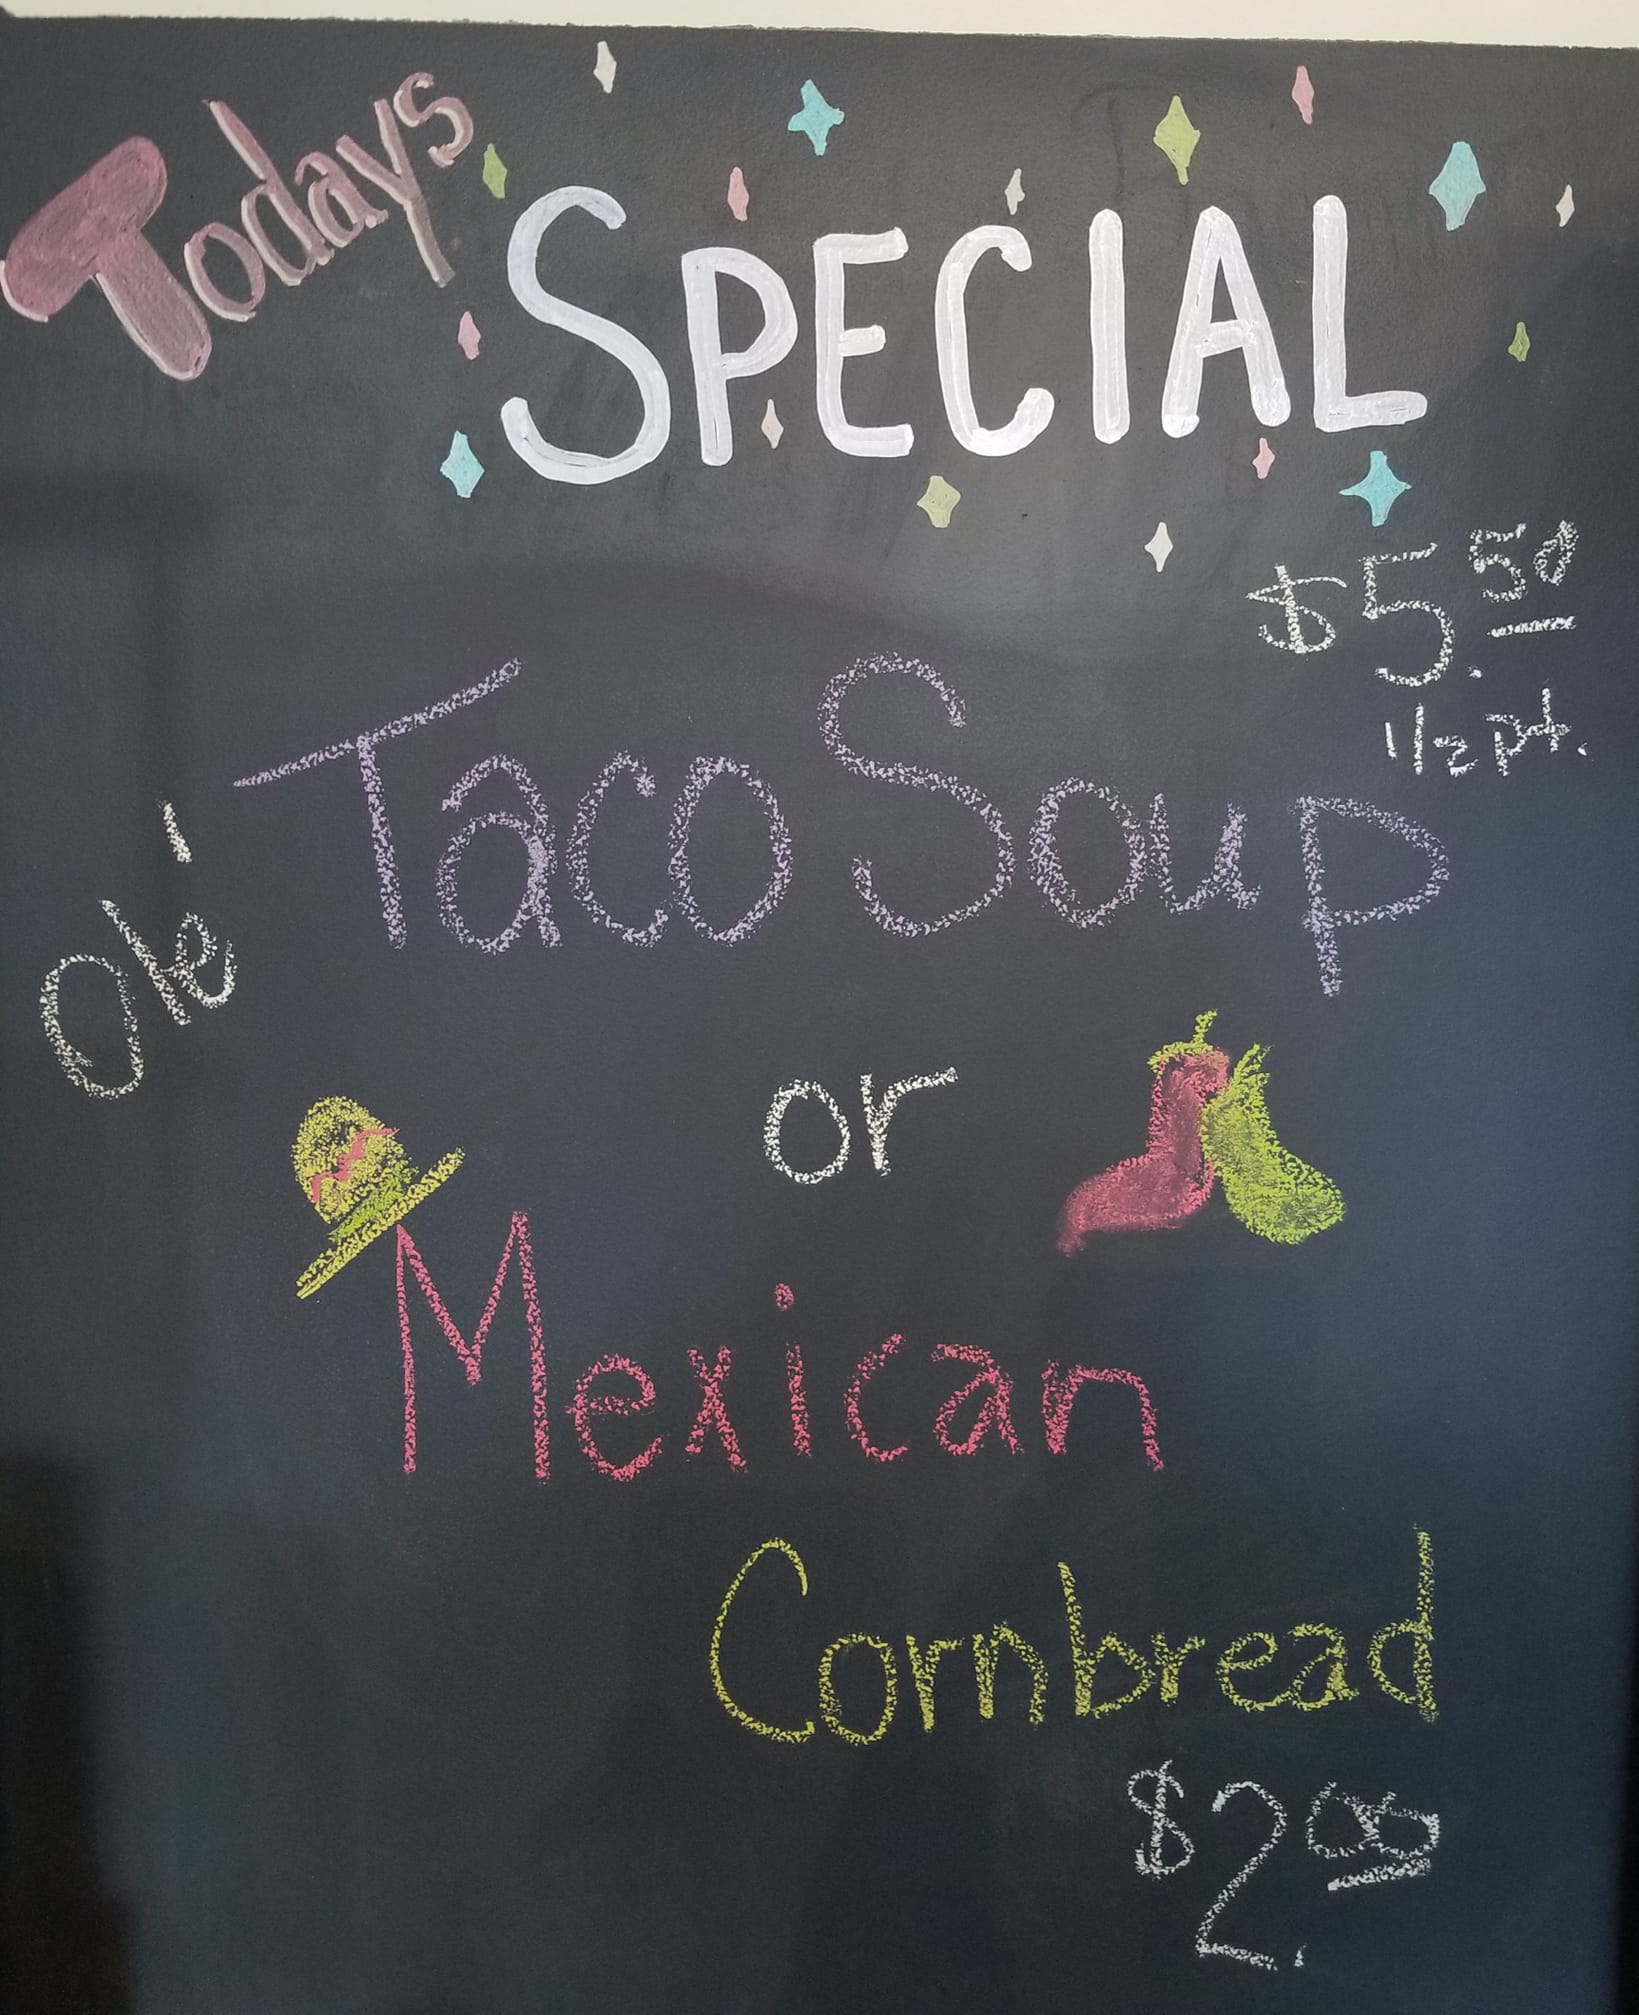 Todays
SPECIAL
$5.50
1/2 pt.
Taco Soup
Ole'
or
Mexican
Cornbread
$2.00